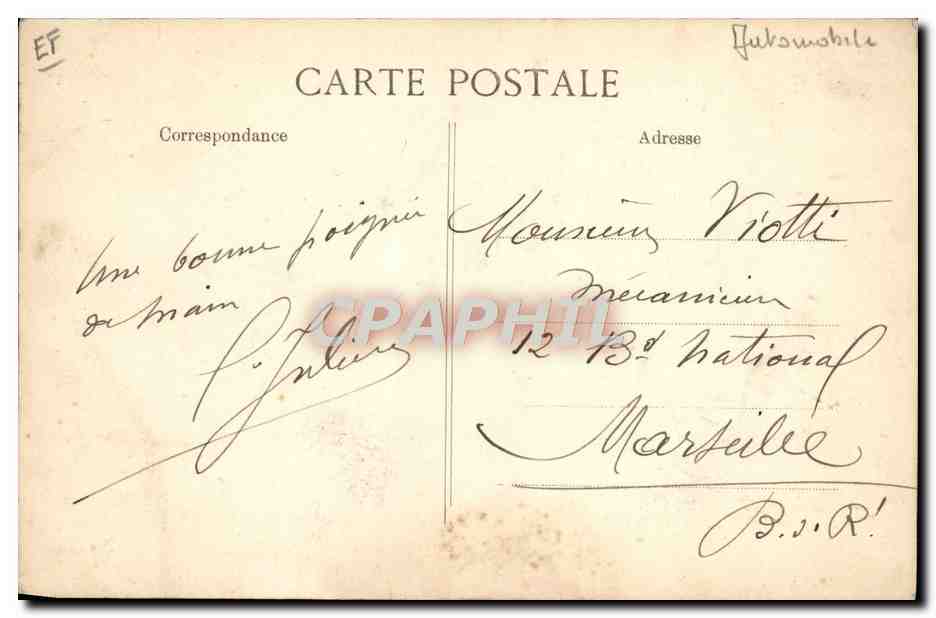 EF
Automobile
CARTE POSTALE
Correspondance
Adresse
Une bonne poignée
de main
Monsieur Viotti
Mécanicien
12 Bd National
Marseille
B. d. R.
CPAPHIL